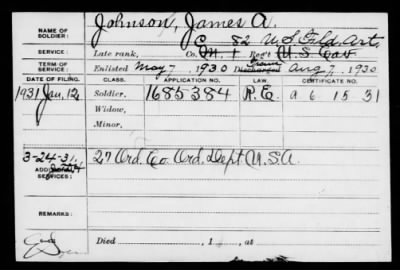 NAME OF SOLDIER: Johnson, James A.
C 82 U S Fld. Art.
SERVICE: Late rank, Co. M. 1 Reg't U. S. Cav
TERM OF SERVICE: Enlisted May 7, 1930 Discharged Aug 7, 1930
DATE OF FILING. CLASS. APPLICATION NO. LAW. CERTIFICATE NO.
1931 Jan, 12 Soldier. 1685384 R.E. a 6 15 31
Widow.
Minor.
3-24-31, 27 Ord. Co. Ord. Dept. U.S.A.
ADDITIONAL SERVICES:
REMARKS:
Died , 1 , at